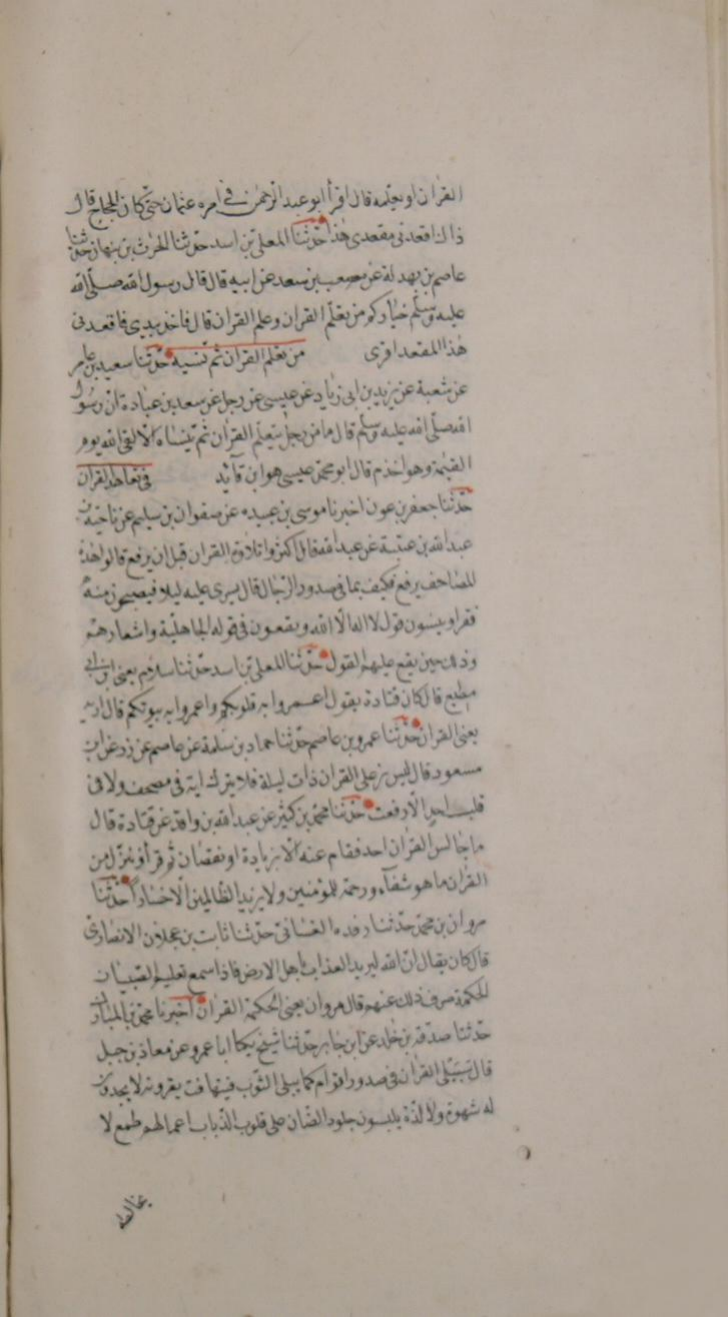 القرآن او يعلمه قال اقرأ ابو عبد الرحمن في امره عثمان حتى كان الحجاج قال
ذاك اقعدني مقعدي هذا حدثنا المعلى بن اسد حدثنا الحرث بن نبهان حدثنا
عاصم بن بهدلة عن مصعب بن سعد عن ابيه قال قال رسول الله صلى الله
عليه وسلم خياركم من يعلم القرآن وعلم القرآن قال فاخذ بيدي فاقعدني
هذا المقعد اقرى من يعلم القرآن ثم نسيه حدثنا سعيد بن عامر
عن شعبة عن يزيد بن ابي زياد عن عيسى عن رجل عن سعد بن عبادة ان رسول
الله صلى الله عليه وسلم قال ما من رجل يتعلم القرآن ثم ينساه الا لقي الله يوم
القيمة وهو اخذم قال ابو محمد عيسى هو ابن فآئد في تعاهد القرآن
حدثنا جعفر بن عون اخبرنا موسى بن عبيده عن صفوان بن سليم عن ناجية بن
عبد الله بن عتبة عن عبد الله قال اكثروا تلاوة القرآن قبل ان يرفع قالوا هذه
المصاحف يرفع فكيف بما في صدور الرجال قال يسرى عليه ليلا فيصبحون منه
فقرا وينسون قول لا اله الا الله ويقعون في قول الجاهلية واشعارهم
وذلك حين يقع عليهم القول حدثنا المعلى بن اسد حدثنا سلام يعني ابن ابي
مطيع قال كان قتادة يقول اعمروا به قلوبكم واعمروا به بيوتكم قال اراه
يعني القرآن حدثنا عمرو بن عاصم حدثنا حماد بن سلمة عن عاصم عن زر عن ابن
مسعود قال ليسرين على القرآن ذات ليلة فلا يترك اية في مصحف ولا في
قلب احد الا رفعت حدثنا محمد بن كثير عن عبد الله بن واقد عن قتادة قال
ما جالس القرآن احد فقام عنه الا بزيادة او نقصان ثم قرأ وننزل من
القرآن ما هو شفآء ورحمة للمؤمنين ولا يزيد الظالمين الا خسارا حدثنا
مروان بن محمد حدثنا رفده الغساني حدثنا ثابت بن عجلان الانصاري
قال كان يقال ان الله ليريد العذاب باهل الارض فاذا سمع تعليم الصبيان
الحكمة صرف ذلك عنهم قال مروان يعني الحكمة القرآن اخبرنا محمد بن المبارك
حدثنا صدقة بن خلد عن ابن جابر حدثنا شيخ يكنا ابا عمرو عن معاذ بن جبل
قال سيبلى القرآن في صدور اقوام كما يبلى الثوب فيتهافت يقرونه لا يجدون
له شهوة ولا لذة يلبسون جلود الضان على قلوب الذياب اعمالهم طمع لا
يخالطه